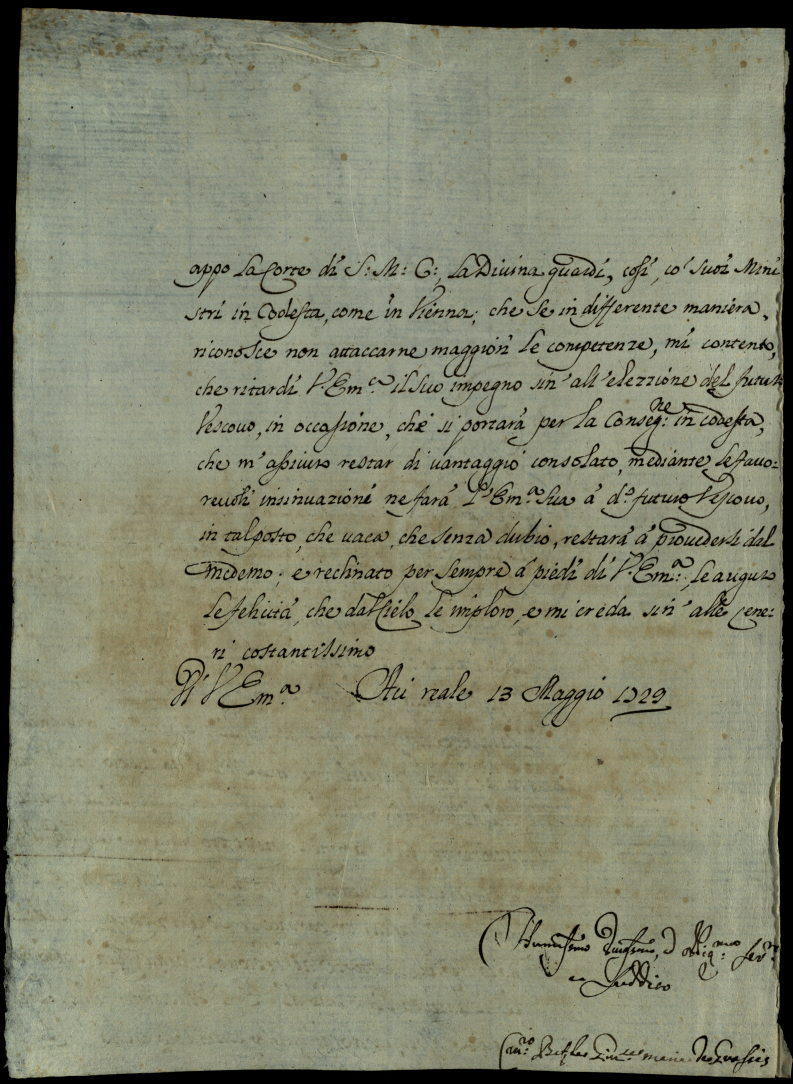 appo la Corte di S: M: C:, la Divina guardi, così, co' suoi Mini
stri in Codesta, come in Vienna; che se in differente maniera,
riconosce non attaccarne maggiori le competenze, mi contento,
che ritardi V. Em.ª il suo impegno sin' all' elezzione del futuro
Vescovo, in occassione, che si portarà per la Conseg:ne in codesta,
che m' assicuro restar di vantaggio consolato, mediante le favo:
revoli insinuazioni ne farà l' Em.ª Sua à d.º futuro Vescovo,
in tal posto, che vaca, che senza dubio, restarà à provedersi dal
medemo; e reclinato per sempre à piedi di V. Em.ª, le auguro
le felicità, che dal Cielo le imploro, e mi creda sin' alle cene:
ri costantissimo
Di V Em.ª Aci reale 13 Maggio 1729
Humilissimo Devotissimo, ed Obligmo Ser.